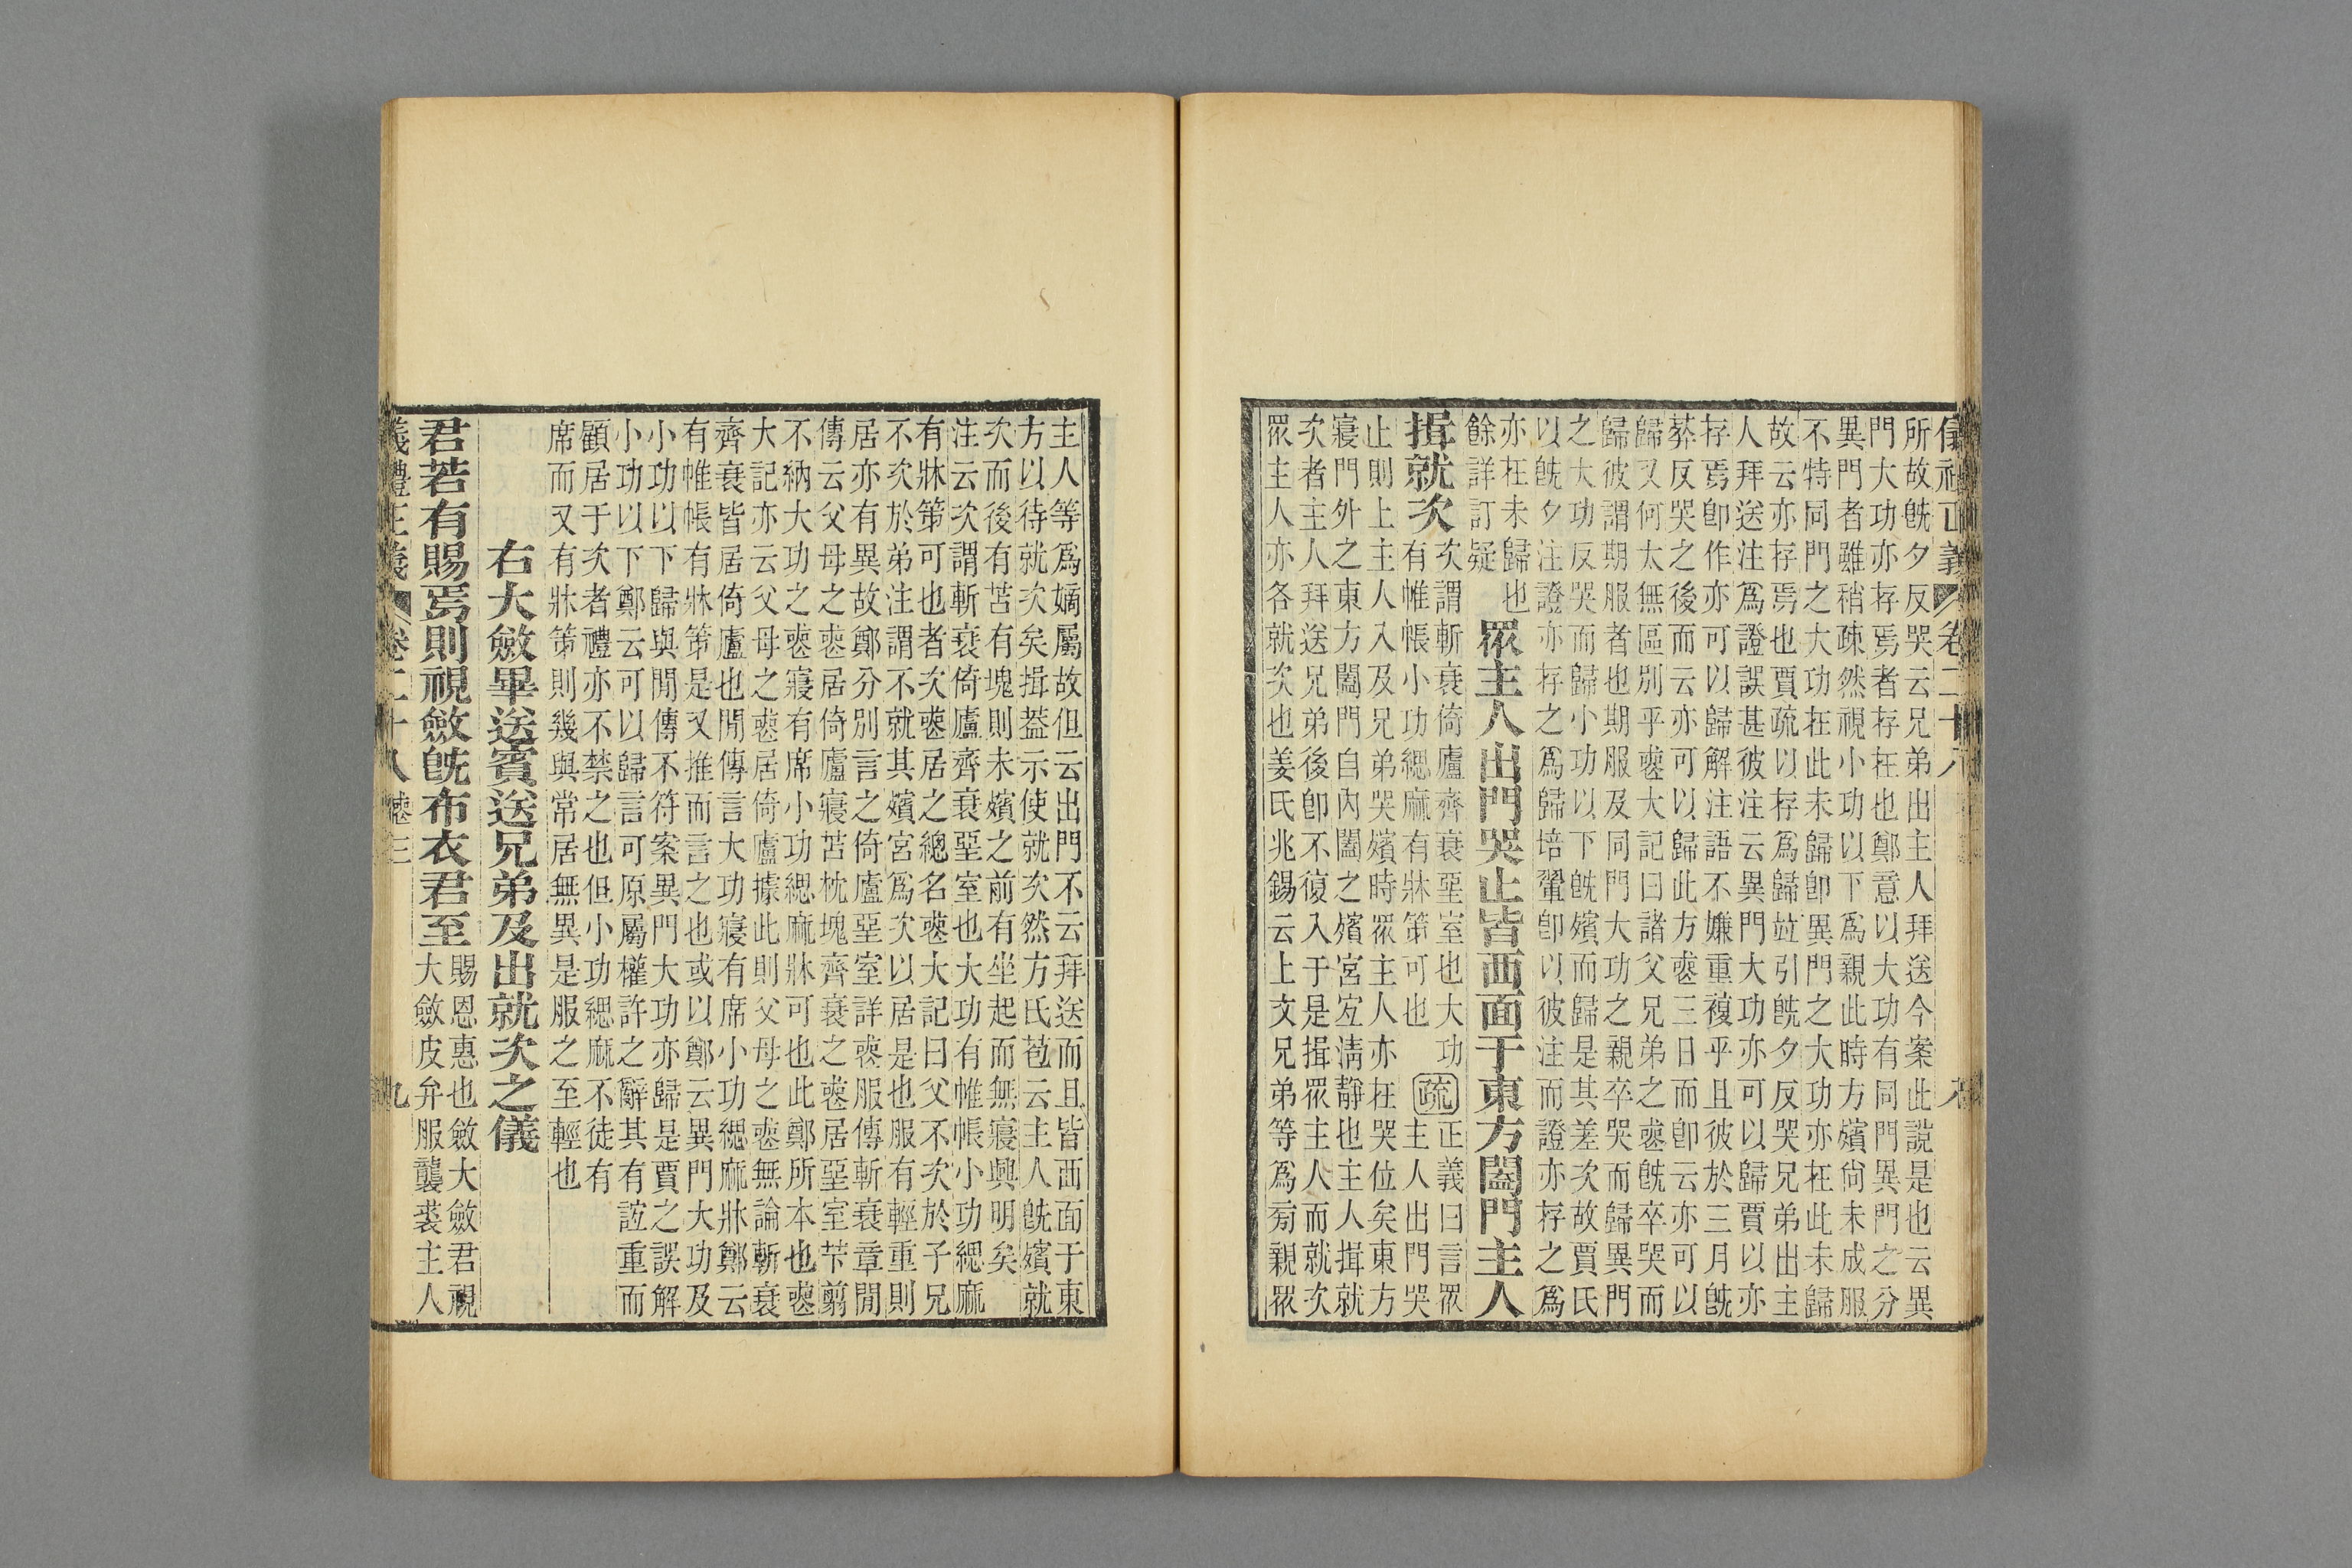 儀禮正義 卷二十八 九
所故旣夕反哭云兄弟出主人拜送今案此說是也云異
門大功亦存焉者存在也鄭意以大功有同門異門之分
異門者雖稍疎然視小功以下爲親此時方殯尙未成服
不特同門之大功在此未歸卽異門之大功亦在此未歸
故云亦存焉也賈疏以存爲歸竝引旣夕反哭兄弟出主
人拜送注爲證誤甚彼注云異門大功亦可以歸賈以亦
存焉卽作亦可以歸解注語不嫌重複乎且彼於三月旣
葬反哭之後而云亦可以歸此方喪三日而卽云亦可以
歸又何太無區別乎喪大記曰諸父兄弟之喪旣卒哭而
歸彼謂期服者也期服及同門大功之親卒哭而歸異門
之大功反哭而歸小功以下旣殯而歸是其差次故賈氏
以旣夕注證亦存之爲歸培翬卽以彼注而證亦存之爲
亦在未歸也
餘詳訂疑
眾主人出門哭止皆西面于東方闔門主人
揖就次
次謂斬衰倚廬齊衰堊室也大功
有帷帳小功緦麻有牀笫可也
疏
正義曰言眾
主人出門哭
止則上主人入及兄弟哭殯時眾主人亦在哭位矣東方
寢門外之東方闔門自內闔之殯宮宐淸靜也主人揖就
次者主人拜送兄弟後卽不復入于是揖眾主人而就次
眾主人亦各就次也姜氏兆錫云上文兄弟等爲旁親眾
主人等爲嫡屬故但云出門不云拜送而且皆西面于東
方以待就次矣揖葢示使就次然方氏苞云主人旣殯就
次而後有苫有塊則未殯之前有坐起而無寢興明矣
注云次謂斬衰倚廬齊衰堊室也大功有帷帳小功緦麻
有牀笫可也者次喪居之總名喪大記曰父不次於子兄
不次於弟注謂不就其殯宮爲次以居是也服有輕重則
居亦有異故鄭分別言之倚廬堊室詳喪服傳斬衰章閒
傳云父母之喪居倚廬寢苫枕塊齊衰之喪居堊室芐翦
不納大功之喪寢有席小功緦麻牀可也此鄭所本也喪
大記亦云父母之喪居倚廬據此則父母之喪無論斬衰
齊衰皆居倚廬也閒傳言大功寢有席小功緦麻牀鄭云
有帷帳有牀笫是又推而言之也或以鄭云異門大功及
小功以下歸與閒傳不符案異門大功亦歸是賈之誤解
小功以下鄭云可以歸言可原屬權許之辭其有誼重而
顧居于次者禮亦不禁之也但小功緦麻不徒有
席而又有牀笫則幾與常居無異是服之至輕也
右大斂畢送賓送兄弟及出就次之儀
君若有賜焉則視斂旣布衣君至
賜恩惠也斂大斂君視
大斂皮弁服襲裘主人
儀禮正義 卷二十八 喪三 九